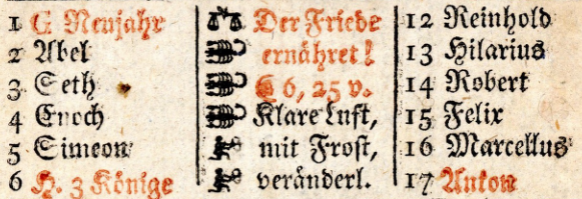 1 C Neujahr
2 Abel
3 Seth
4 Enoch
5 Simeon
6 H. 3 Könige
Der Friede
ernähret!
☾ 6, 25 v.
Klare Luft,
mit Frost,
veränderl.
12 Reinhold
13 Hilarius
14 Robert
15 Felix
16 Marcellus
17 Anton